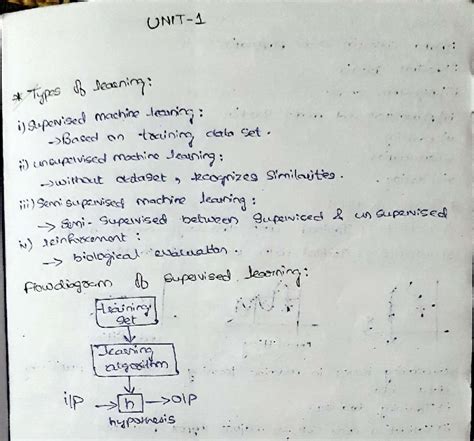 UNIT-1
* Types of learning:
i) supervised machine learning:
→Based on training data set.
ii) unsupervised machine learning:
→without dataset, recognizes similarities.
iii) Semi supervised machine learning:
→ Semi-supervised between supervised & unsupervised
iv) reinforcement:
→ biological evaluation.
flowdiagram of supervised learning:
training
set
learning
algorithm
i/p → h → o/p
hypothesis